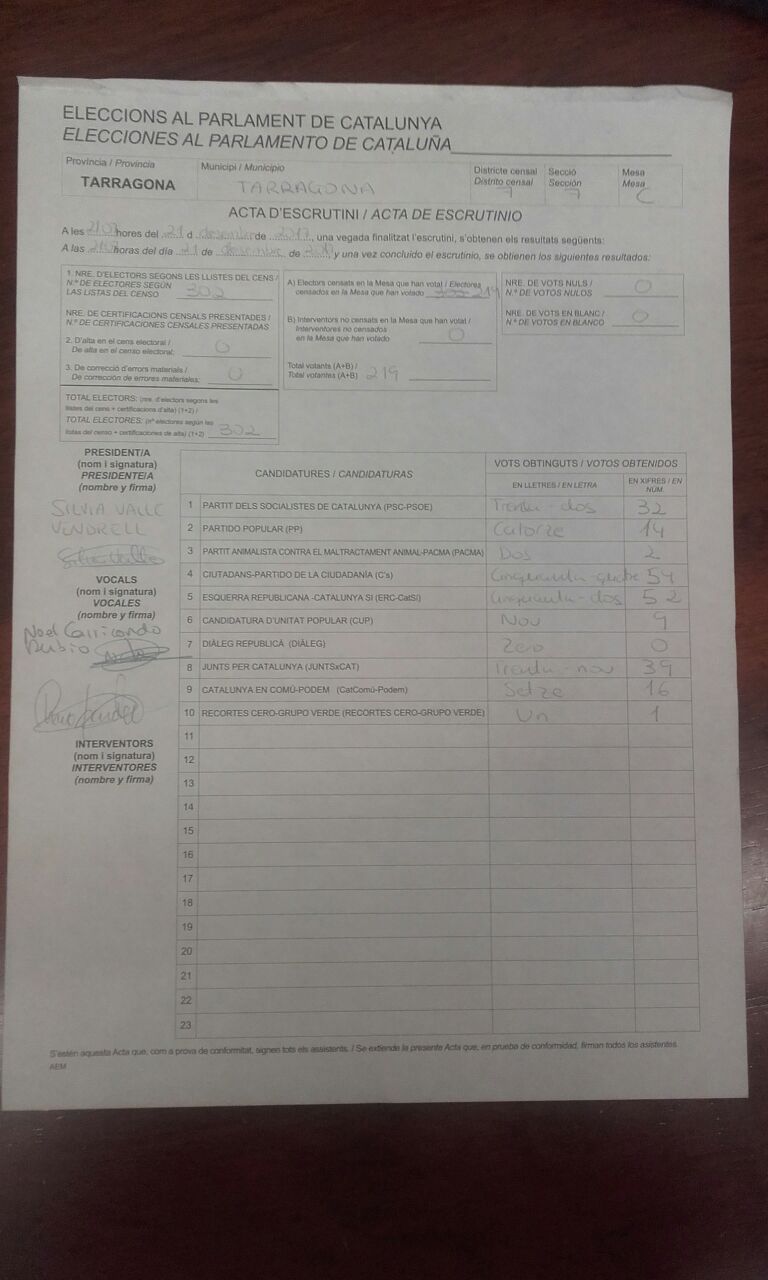 ELECCIONS AL PARLAMENT DE CATALUNYA
ELECCIONES AL PARLAMENTO DE CATALUÑA
Província / Provincia
TARRAGONA
Municipi / Municipio
TARRAGONA
Districte censal
Distrito censal
7
Secció
Sección
7
Mesa
Mesa
C
ACTA D'ESCRUTINI / ACTA DE ESCRUTINIO
A les 21:07 hores del 21 d desembre de 2017, una vegada finalitzat l'escrutini, s'obtenen els resultats següents:
A las horas del día 21 de de 2017 y una vez concluido el escrutinio, se obtienen los siguientes resultados:
1. NRE. D'ELECTORS SEGONS LES LLISTES DEL CENS /
N.º DE ELECTORES SEGÚN
LAS LISTAS DEL CENSO 302
NRE. DE CERTIFICACIONS CENSALS PRESENTADES /
N.º DE CERTIFICACIONES CENSALES PRESENTADAS
2. D'alta en el cens electoral /
De alta en el censo electoral: 0
3. De correcció d'errors materials /
De corrección de errores materiales: 0
TOTAL ELECTORS: (nre. d'electors segons les
llistes del cens + certificacions d'alta) (1+2) /
TOTAL ELECTORES: (nº electores según las
listas del censo + certificaciones de alta) (1+2) 302
A) Electors censats en la Mesa que han votat / Electores
censados en la Mesa que han votado 219
B) Interventors no censats en la Mesa que han votat /
Interventores no censados
en la Mesa que han votado 0
Total votants (A+B) /
Total votantes (A+B) 219
NRE. DE VOTS NULS /
N.º DE VOTOS NULOS 0
NRE. DE VOTS EN BLANC /
N.º DE VOTOS EN BLANCO 0
PRESIDENT/A
(nom i signatura)
PRESIDENTE/A
(nombre y firma)
SILVIA VALLE
VENDRELL
VOCALS
(nom i signatura)
VOCALES
(nombre y firma)
Noel Carricondo
Rubio
INTERVENTORS
(nom i signatura)
INTERVENTORES
(nombre y firma)
CANDIDATURES / CANDIDATURAS
VOTS OBTINGUTS / VOTOS OBTENIDOS
EN LLETRES / EN LETRA
EN XIFRES / EN NÚM.
1 PARTIT DELS SOCIALISTES DE CATALUNYA (PSC-PSOE) Trenta-dos 32
2 PARTIDO POPULAR (PP) Catorze 14
3 PARTIT ANIMALISTA CONTRA EL MALTRACTAMENT ANIMAL-PACMA (PACMA) Dos 2
4 CIUTADANS-PARTIDO DE LA CIUDADANÍA (C's) Cinquanta-quatre 54
5 ESQUERRA REPUBLICANA -CATALUNYA SI (ERC-CatSí) Cinquanta-dos 52
6 CANDIDATURA D'UNITAT POPULAR (CUP) Nou 9
7 DIÀLEG REPUBLICÀ (DIÀLEG) Zero 0
8 JUNTS PER CATALUNYA (JUNTSxCAT) Trenta-nou 39
9 CATALUNYA EN COMÚ-PODEM (CatComú-Podem) Setze 16
10 RECORTES CERO-GRUPO VERDE (RECORTES CERO-GRUPO VERDE) Un 1
11
12
13
14
15
16
17
18
19
20
21
22
23
S'estén aquesta Acta que, com a prova de conformitat, signen tots els assistents. / Se extiende la presente Acta que, en prueba de conformidad, firman todos los asistentes.
AEM